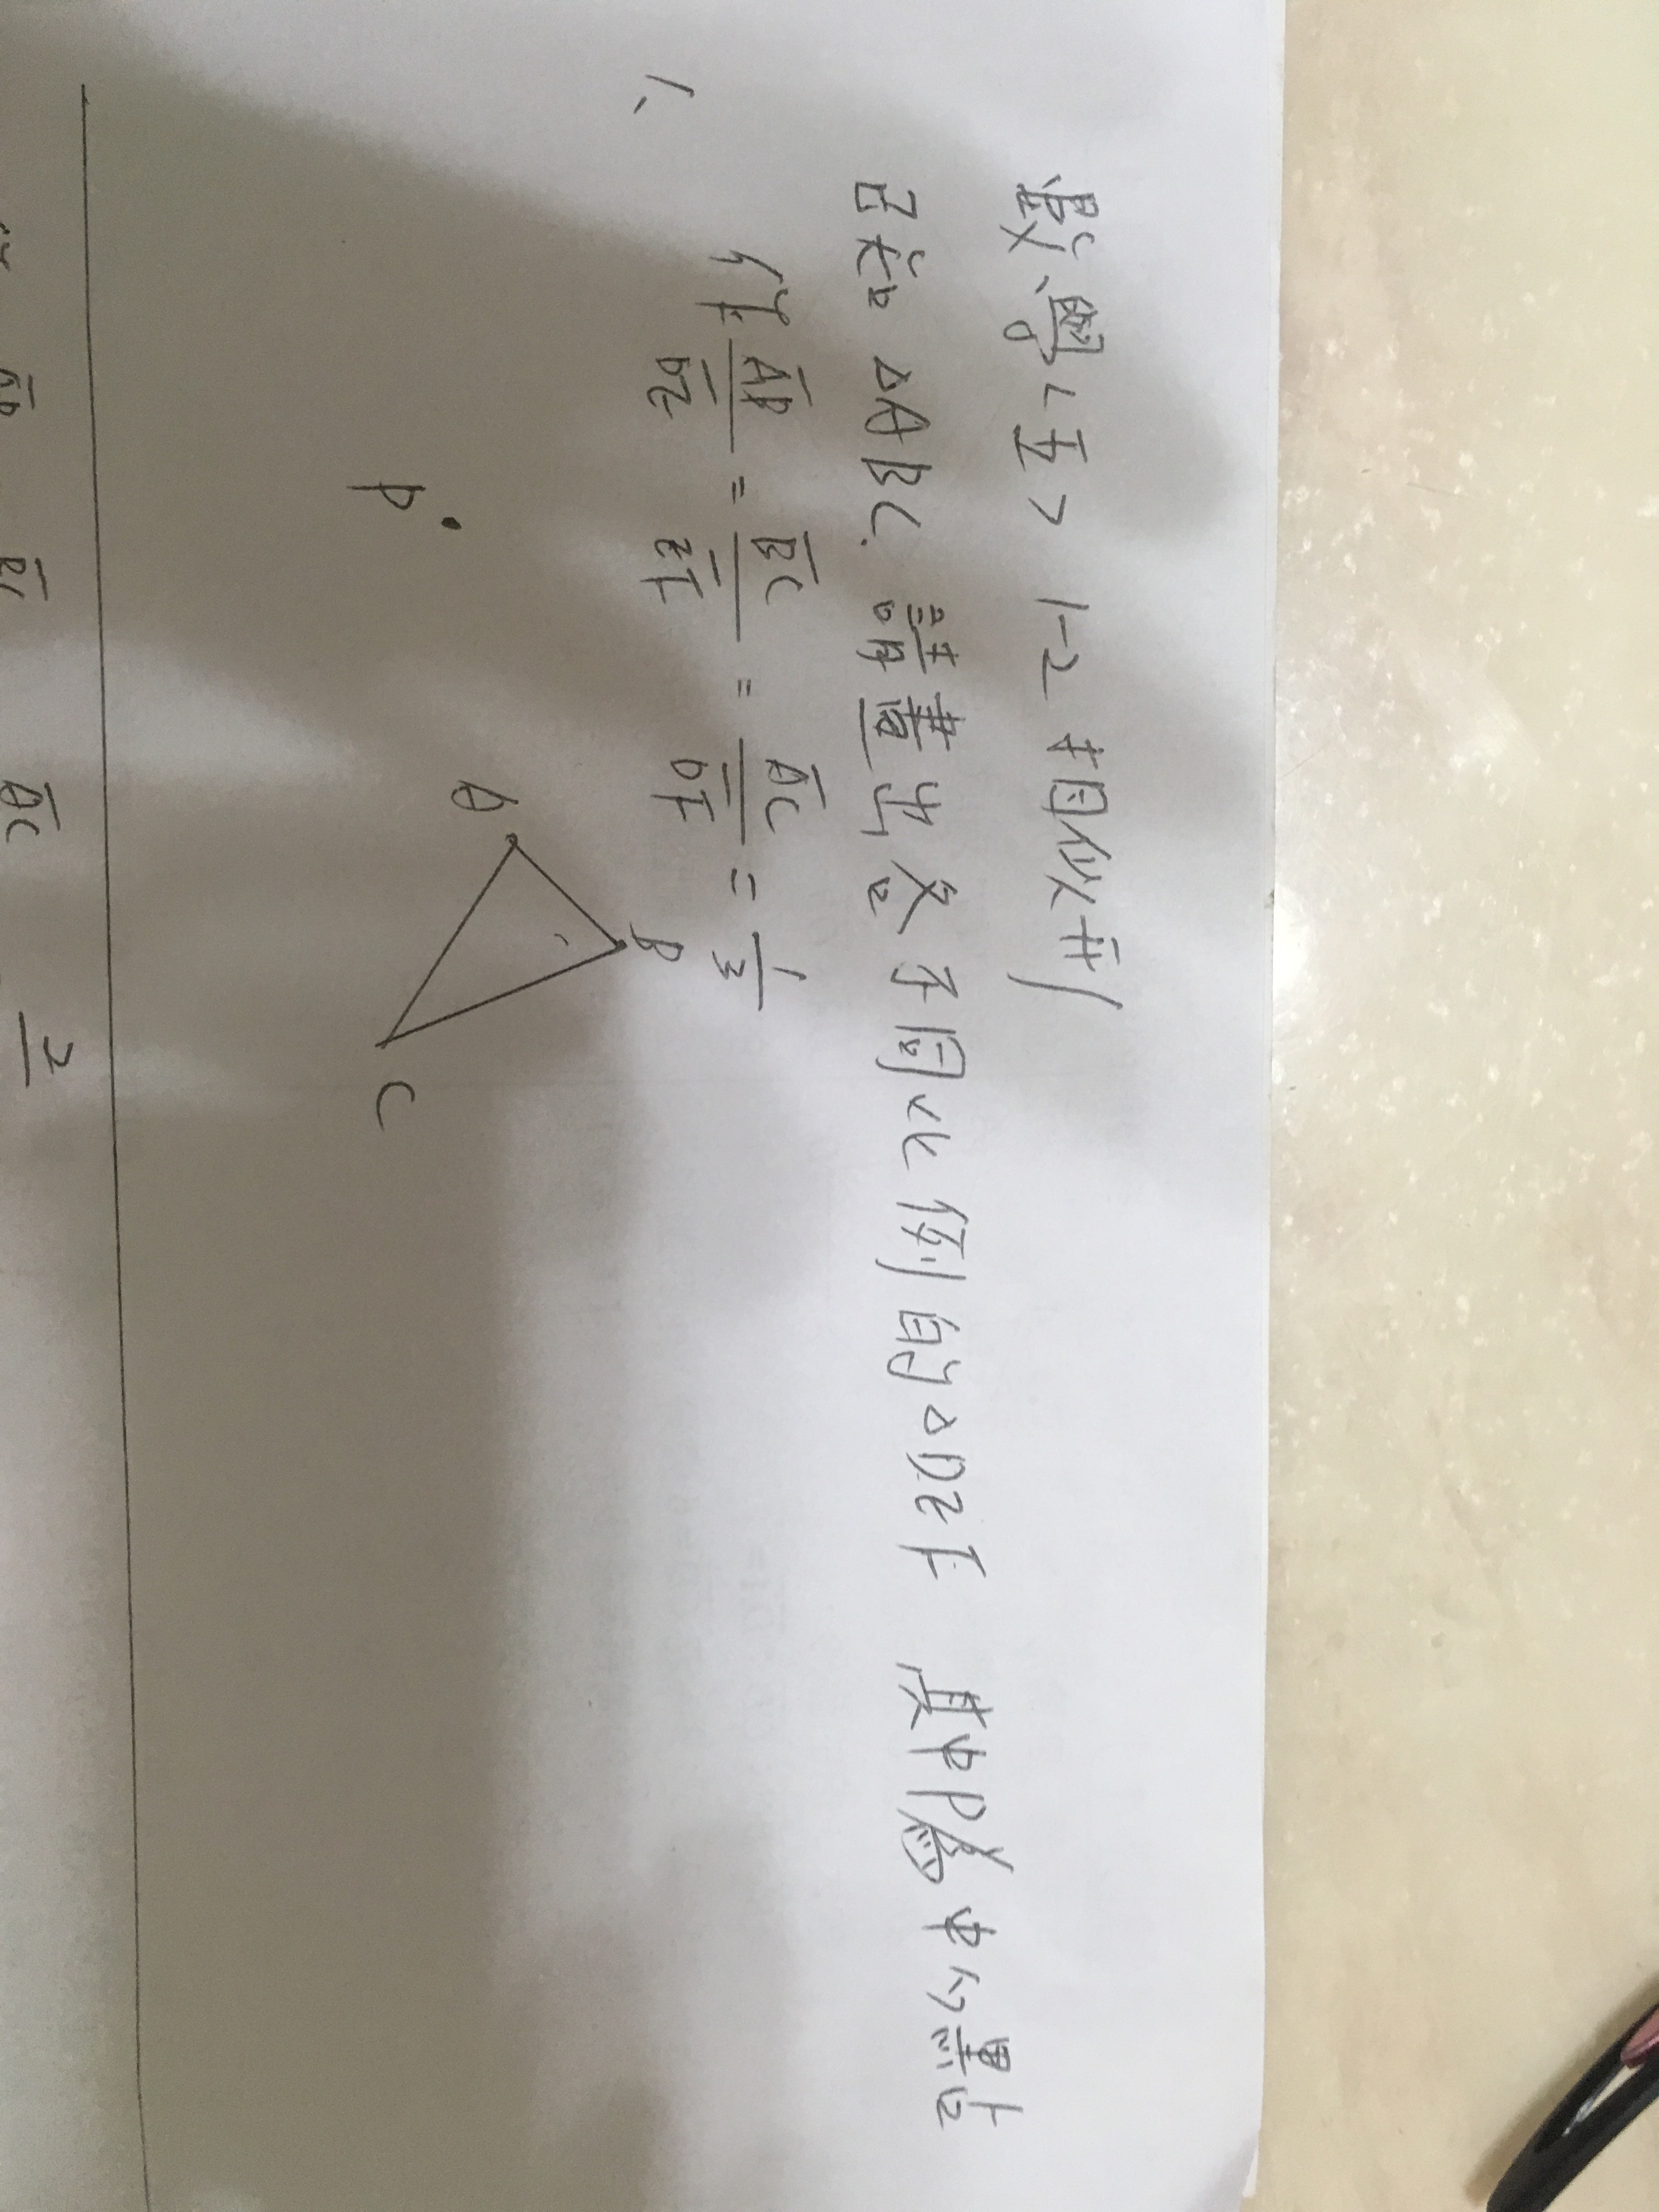 數學<五> 1-2 相似形
已知△ABC. 請畫出各不同比例的△DEF 其中P為中心點
1、
AB/DE = BC/EF = AC/DF = 1/3
P
A
B
C
AC
2